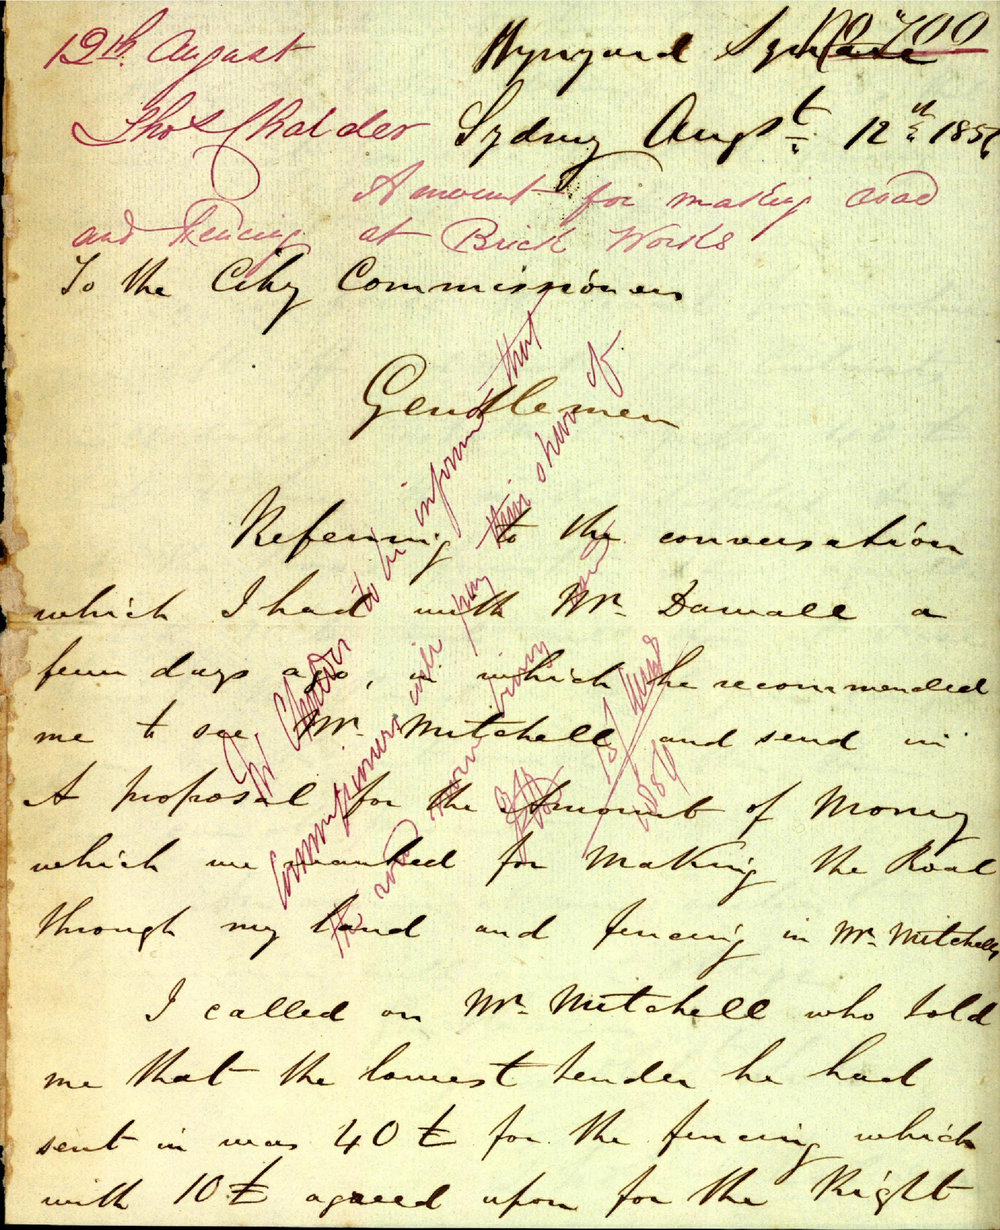 No 700
12th August
Wynyard Square
Thos Chalder
Sydney Augst 12th 1856
Amount for making road
and Fencing at Brick Works
To the City Commissioners
Gentlemen
Referring to the conversation
which I had with Mr. Darvall a
few days ago, in which he recommended
me to see Mr. Mitchell and send in
A proposal for the Amount of Money
which we wanted for Making the Road
through my land and fencing in Mr. Mitchells
I called on Mr. Mitchell who told
me that the lowest tender he had
sent in was 40 £ for the fencing which
with 10 £ agreed upon for the Right
Mr Chalder to be informed that
Commissioners will pay their share of
the road